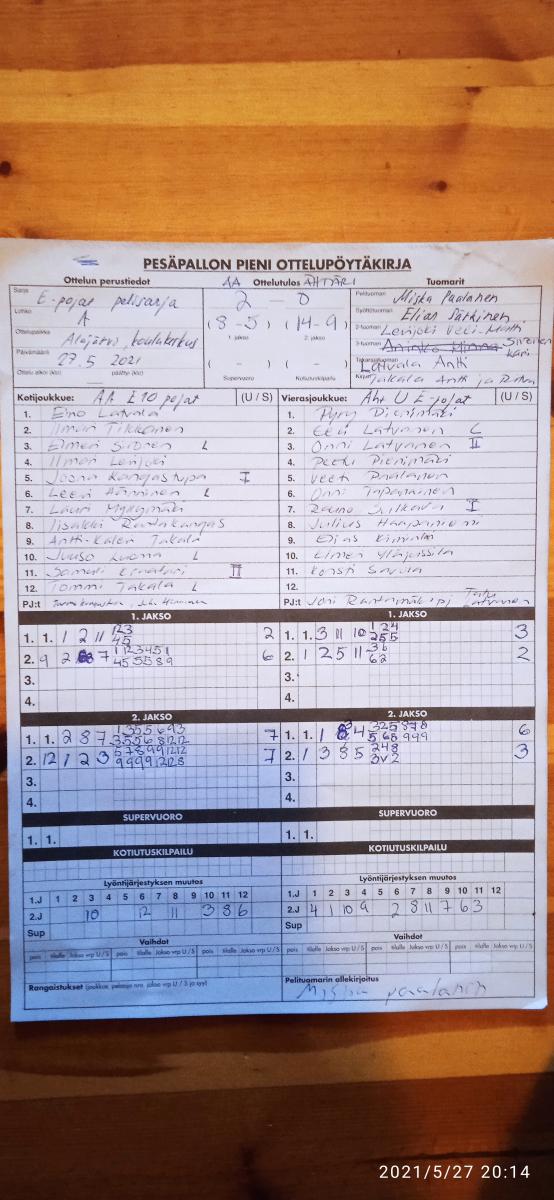 PESÄPALLON PIENI OTTELUPÖYTÄKIRJA
Ottelun perustiedot AA Ottelutulos ÄHTÄRI Tuomarit
Sarja E-pojat pelisarja
Lohko A
Ottelupaikka Alajärvi, koulukeskus
Päivämäärä 27.5 2021
Ottelu alkoi (klo) päättyi (klo)
2 - 0
(8 - 5) (14 - 9)
1. jakso 2. jakso
( - ) ( - )
Supervuoro Kotiutuskilpailu
Pelituomari Miska Paalanen
Syöttötuomari Elias Sätkinen
2-tuomari Lenjoki Veli-Matti
3-tuomari Kari
Takarajatuomari Latvala Antti
Kirjuri Takala Antti ja
Kotijoukkue: AA E10 pojat (U / S)
1. Eino Latvala
2. Ilmari Tikkanen
3. Elmeri Siironen L
4. Ilmari Lenjoki
5. Joona Kangastupa I
6. Leevi Hänninen L
7. Lauri Myllymäki
8. Iisakki Rautakangas
9. Antti-Kalen Takala
10. Juuso Luoma L
11. Samuli II
12. Tommi Takala L
PJ:t
Vierasjoukkue: Äht U E-pojat (U / S)
1. Pyry Pienimäki
2. Eeli Latvanen L
3. Onni Latvanen II
4. Peetu Pienimäki
5. Veeti Paalanen
6. Onni Tapanainen
7. I
8. Julius Haapaniemi
9. Elias
10. Elmeri Yläjussila
11. Konsti Savola
12.
PJ:t Joni Rantamäki pj Latvanen
1. JAKSO
1. 1. 1 2 11 123 45 2
2. 9 2 7 1123451 455589 6
3.
4.
1. JAKSO
1. 1. 3 11 10 124 255 3
2. 1 2 5 11 36 62 2
3.
4.
2. JAKSO
1. 1. 2 8 7 1355693 355681212 7
2. 12 1 2 3 578991212 999912128 7
3.
4.
2. JAKSO
1. 1. 1 4 325878 568999 6
2. 1 3 8 5 248 3V2 3
3.
4.
SUPERVUORO
1. 1.
SUPERVUORO
1. 1.
KOTIUTUSKILPAILU
KOTIUTUSKILPAILU
Lyöntijärjestyksen muutos
1.J 1 2 3 4 5 6 7 8 9 10 11 12
2.J 10 12 11 3 8 6
Sup
Lyöntijärjestyksen muutos
1.J 1 2 3 4 5 6 7 8 9 10 11 12
2.J 4 1 10 9 2 8 11 7 6 3
Sup
Vaihdot
pois tilalle Jakso vrp U / S pois tilalle Jakso vrp U / S
Vaihdot
pois tilalle Jakso vrp U / S pois tilalle Jakso vrp U / S
Rangaistukset (joukkue, pelaaja nro, jakso vrp U / S ja syy)
Pelituomarin allekirjoitus
Miska paalanen
2021/5/27 20:14